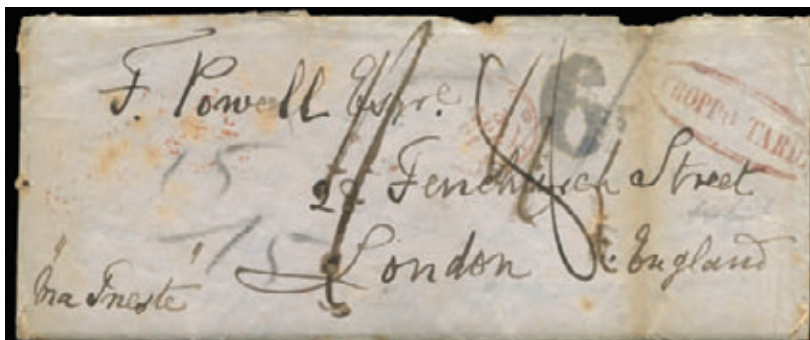 F. Powell Esqre.
6
TROPPO TARDI
22 Fenchurch Street
London
England
"Via Trieste"
15
15